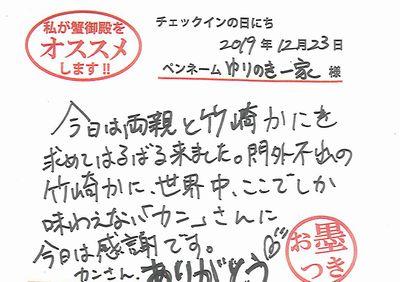 私が蟹御殿を
オススメ
します!!
チェックインの日にち
2019年12月23日
ペンネーム ゆりのき一家 様
今日は両親と竹崎かにを
求めてはるばる来ました。門外不出の
竹崎かに、世界中、ここでしか
味わえない「カニ」さんに
今日は感謝です。
カニさん、ありがとう
お墨
つき